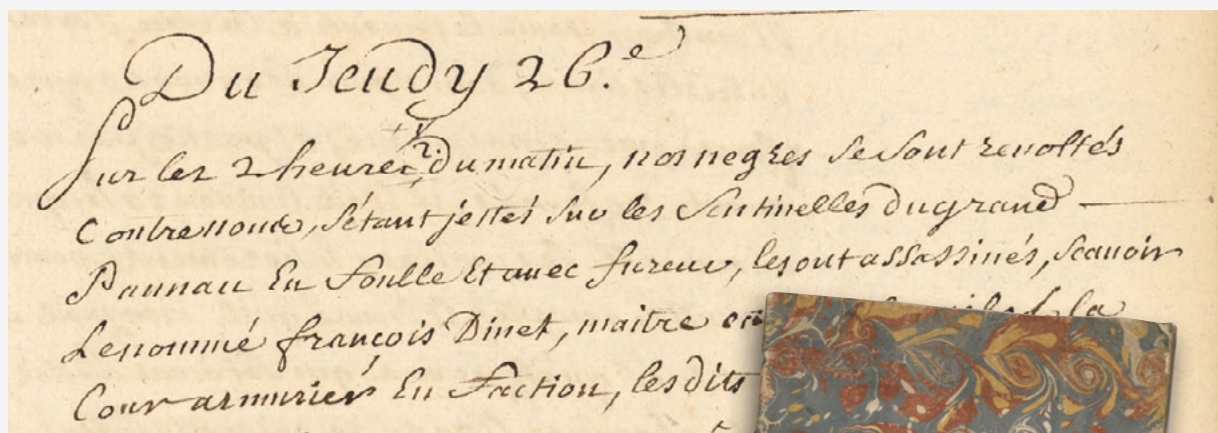 Du Jeudy 26.e
Sur les 2 heures 1/2 du matin, nos negres se sont revoltés
Contre nous, s'étant jettés sur les Sentinelles du grand
Pannau En Foulle Et avec fureur, les ont assassinés, Scavoir
Le nommé françois Dinet, maitre de la
Cour armurier En Faction, les dits